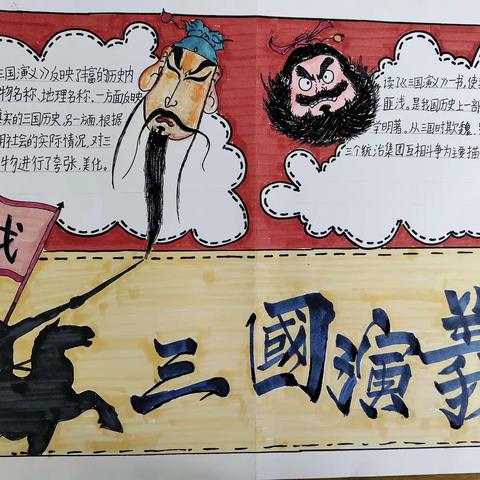 三国演义》反映了丰富的历史内
物名称、地理名称、一方面反映
真实的三国历史,另一方面,根据
用社会的实际情况,对三
物进行了夸张、美化。
读了《三国演义》一书,使
匪浅。是我国历史上一部
学明著。从三国时期魏、
三个统治集团互相斗争为主要描
三國演義